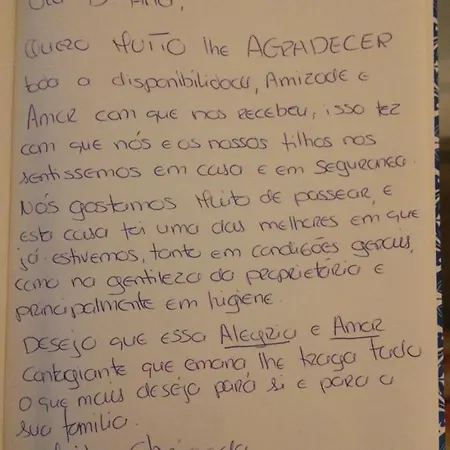 Quero Muito lhe AGRADECER
toda a disponibilidade, Amizade e
Amor com que nos recebeu, isso fez
com que nós e os nossos filhos nos
sentissemos em casa e em segurança.
Nós gostamos Muito de passear, e
esta casa foi uma das melhores em que
já estivemos, tanto em condições gerais,
como na gentileza da proprietária e
principalmente em higiene.
Desejo que essa Alegria e Amor
Contagiante que emana lhe traga tudo
O que mais deseja para si e para a
sua familia.